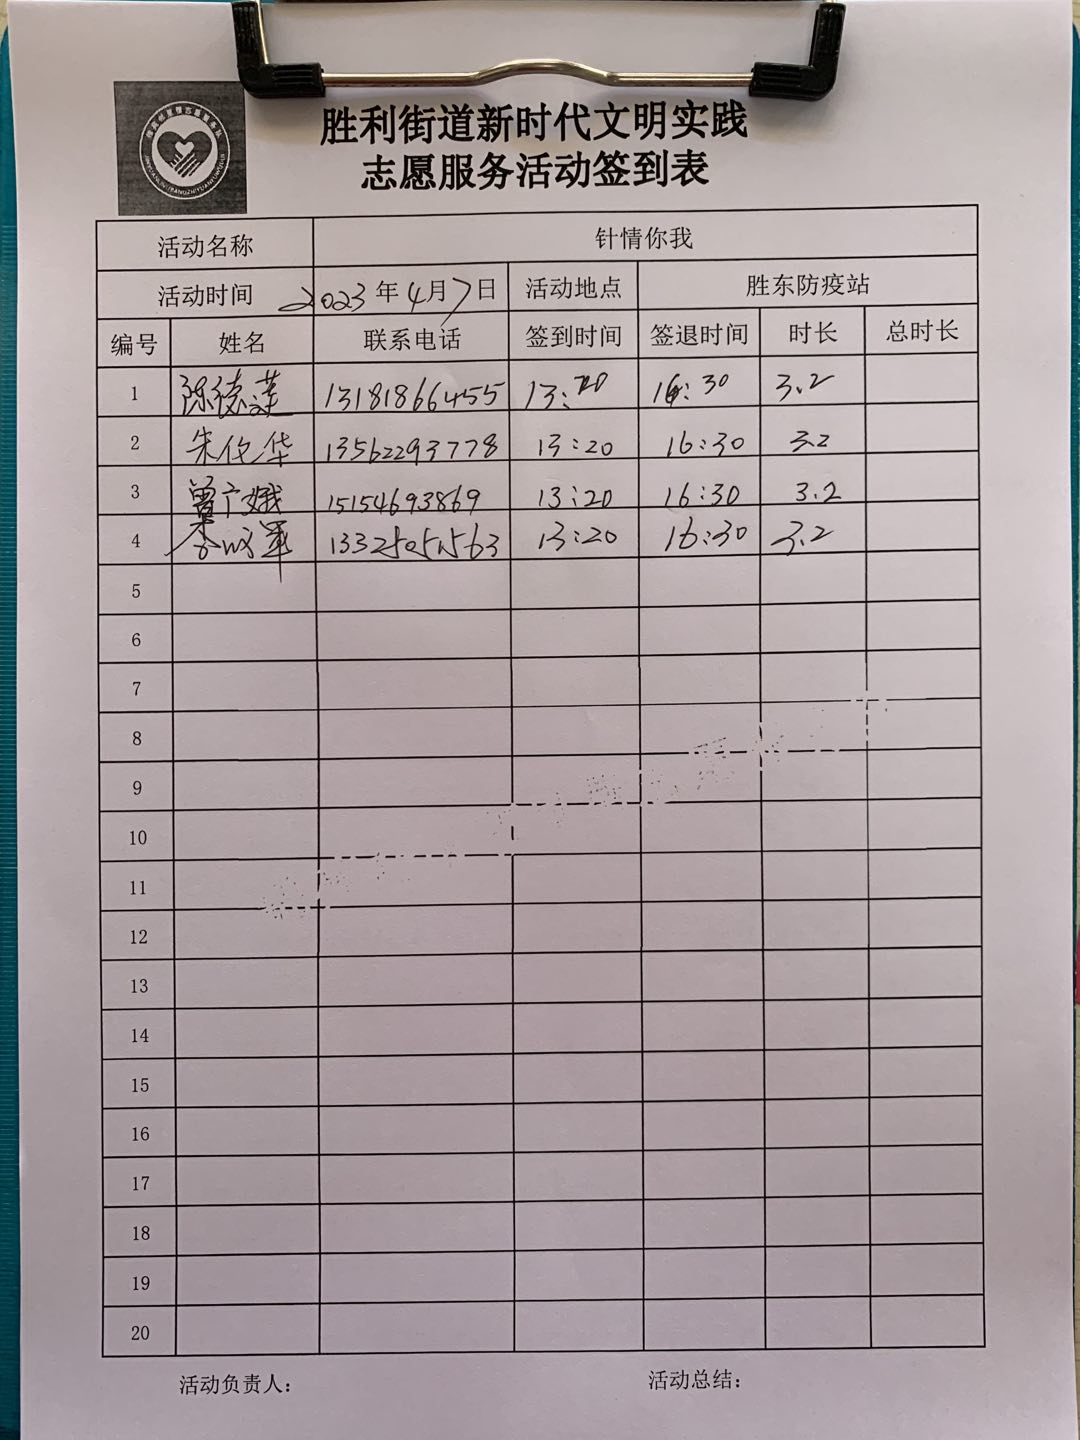 胜利街道新时代文明实践
志愿服务活动签到表
活动名称 针情你我
活动时间 2023年4月7日 活动地点 胜东防疫站
编号 姓名 联系电话 签到时间 签退时间 时长 总时长
1 陈德莲 13181866455 13:20 16:30 3.2
2 朱化华 13562293778 13:20 16:30 3.2
3 曾广娥 15154693869 13:20 16:30 3.2
4 13325051563 13:20 16:30 3.2
5
6
7
8
9
10
11
12
13
14
15
16
17
18
19
20
活动负责人： 活动总结：